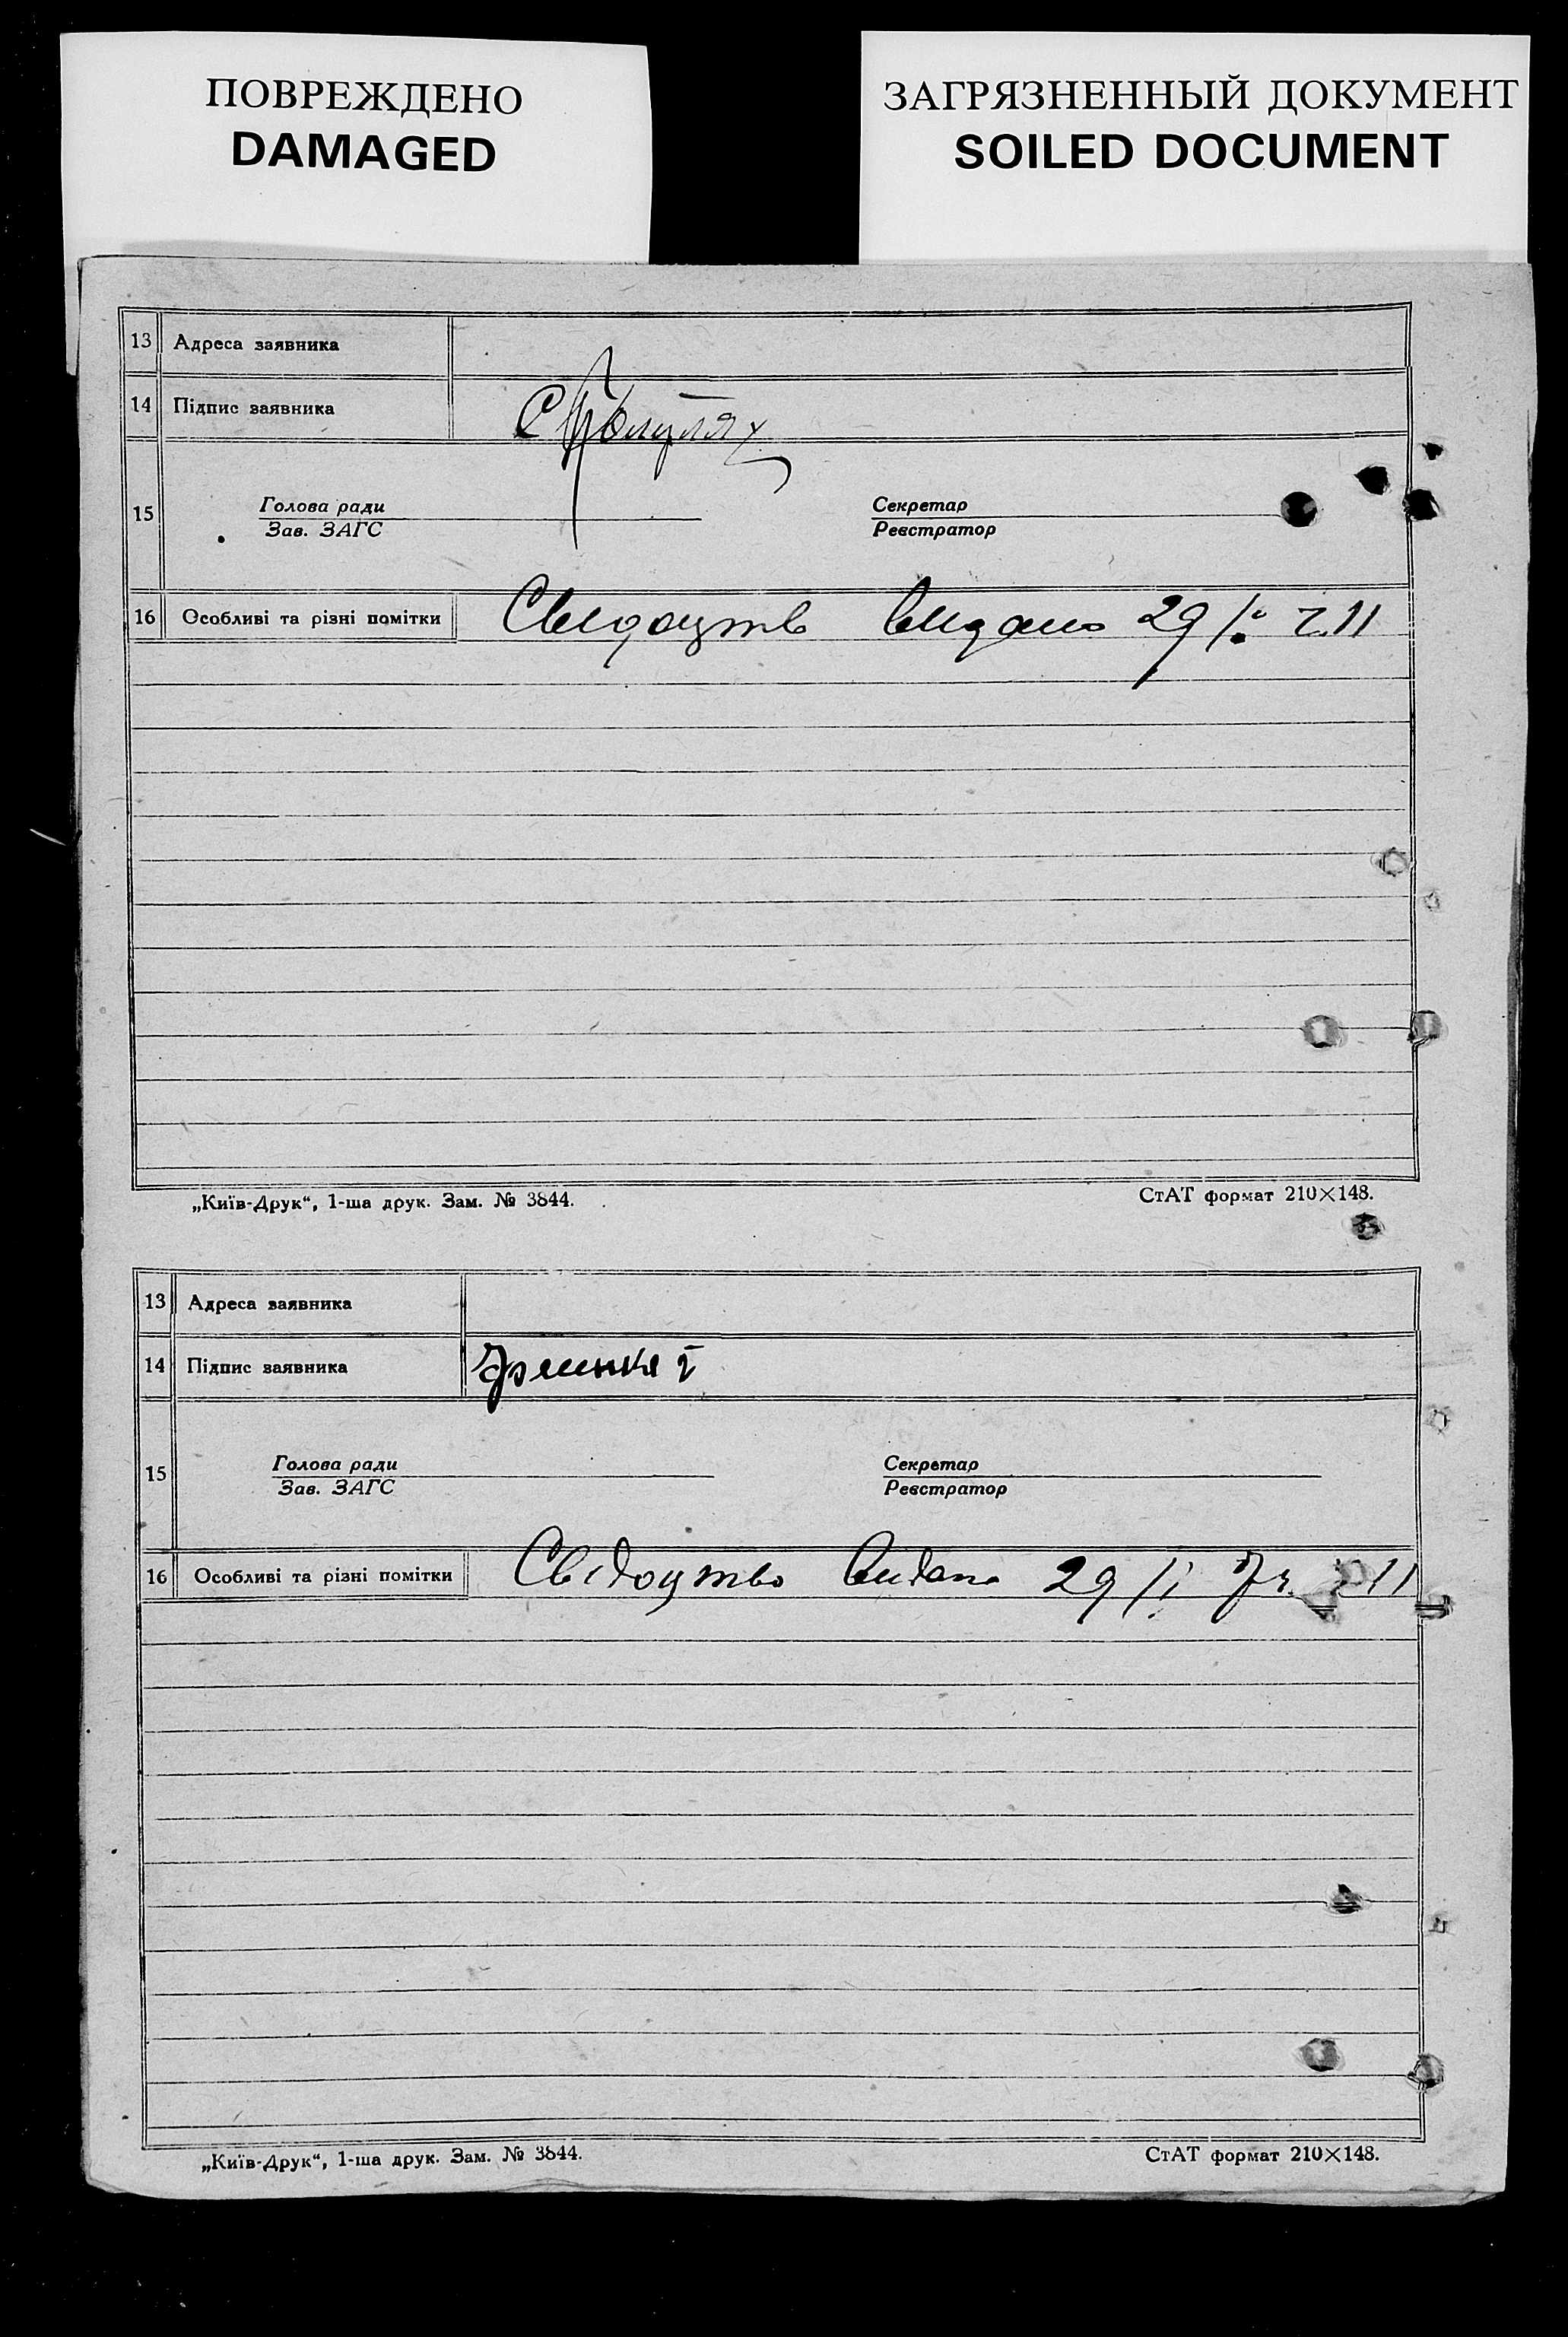 ПОВРЕЖДЕНО
DAMAGED
ЗАГРЯЗНЕННЫЙ ДОКУМЕНТ
SOILED DOCUMENT
13 Адреса заявника
14 Підпис заявника
15 Голова ради Секретар
Зав. ЗАГС Реєстратор
16 Особливі та різні помітки Свидоцтв видано 29/I
„Київ-Друк“, 1-ша друк. Зам. № 3844. СтАТ формат 210×148.
13 Адреса заявника
14 Підпис заявника
15 Голова ради Секретар
Зав. ЗАГС Реєстратор
16 Особливі та різні помітки Свідоцтво видано 29/I
„Київ-Друк“, 1-ша друк. Зам. № 3844. СтАТ формат 210×148.